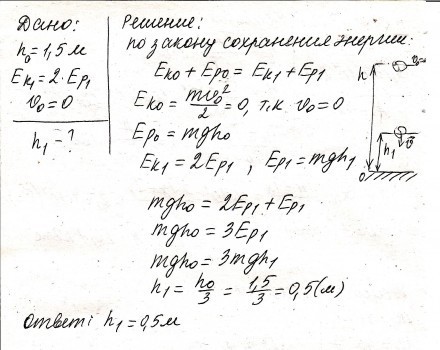 Дано:
h₀ = 1,5 м
Eк₁ = 2·Eр₁
v₀ = 0
h₁ - ?
Решение:
по закону сохранения энергии:
Eк₀ + Eр₀ = Eк₁ + Eр₁
Eк₀ = mv₀²/2 = 0, т.к. v₀ = 0
Eр₀ = mgh₀
Eк₁ = 2Eр₁ , Eр₁ = mgh₁
mgh₀ = 2Eр₁ + Eр₁
mgh₀ = 3Eр₁
mgh₀ = 3mgh₁
h₁ = h₀/3 = 1,5/3 = 0,5 (м)
Ответ: h₁ = 0,5 м
h
v₀
h₁
v
0